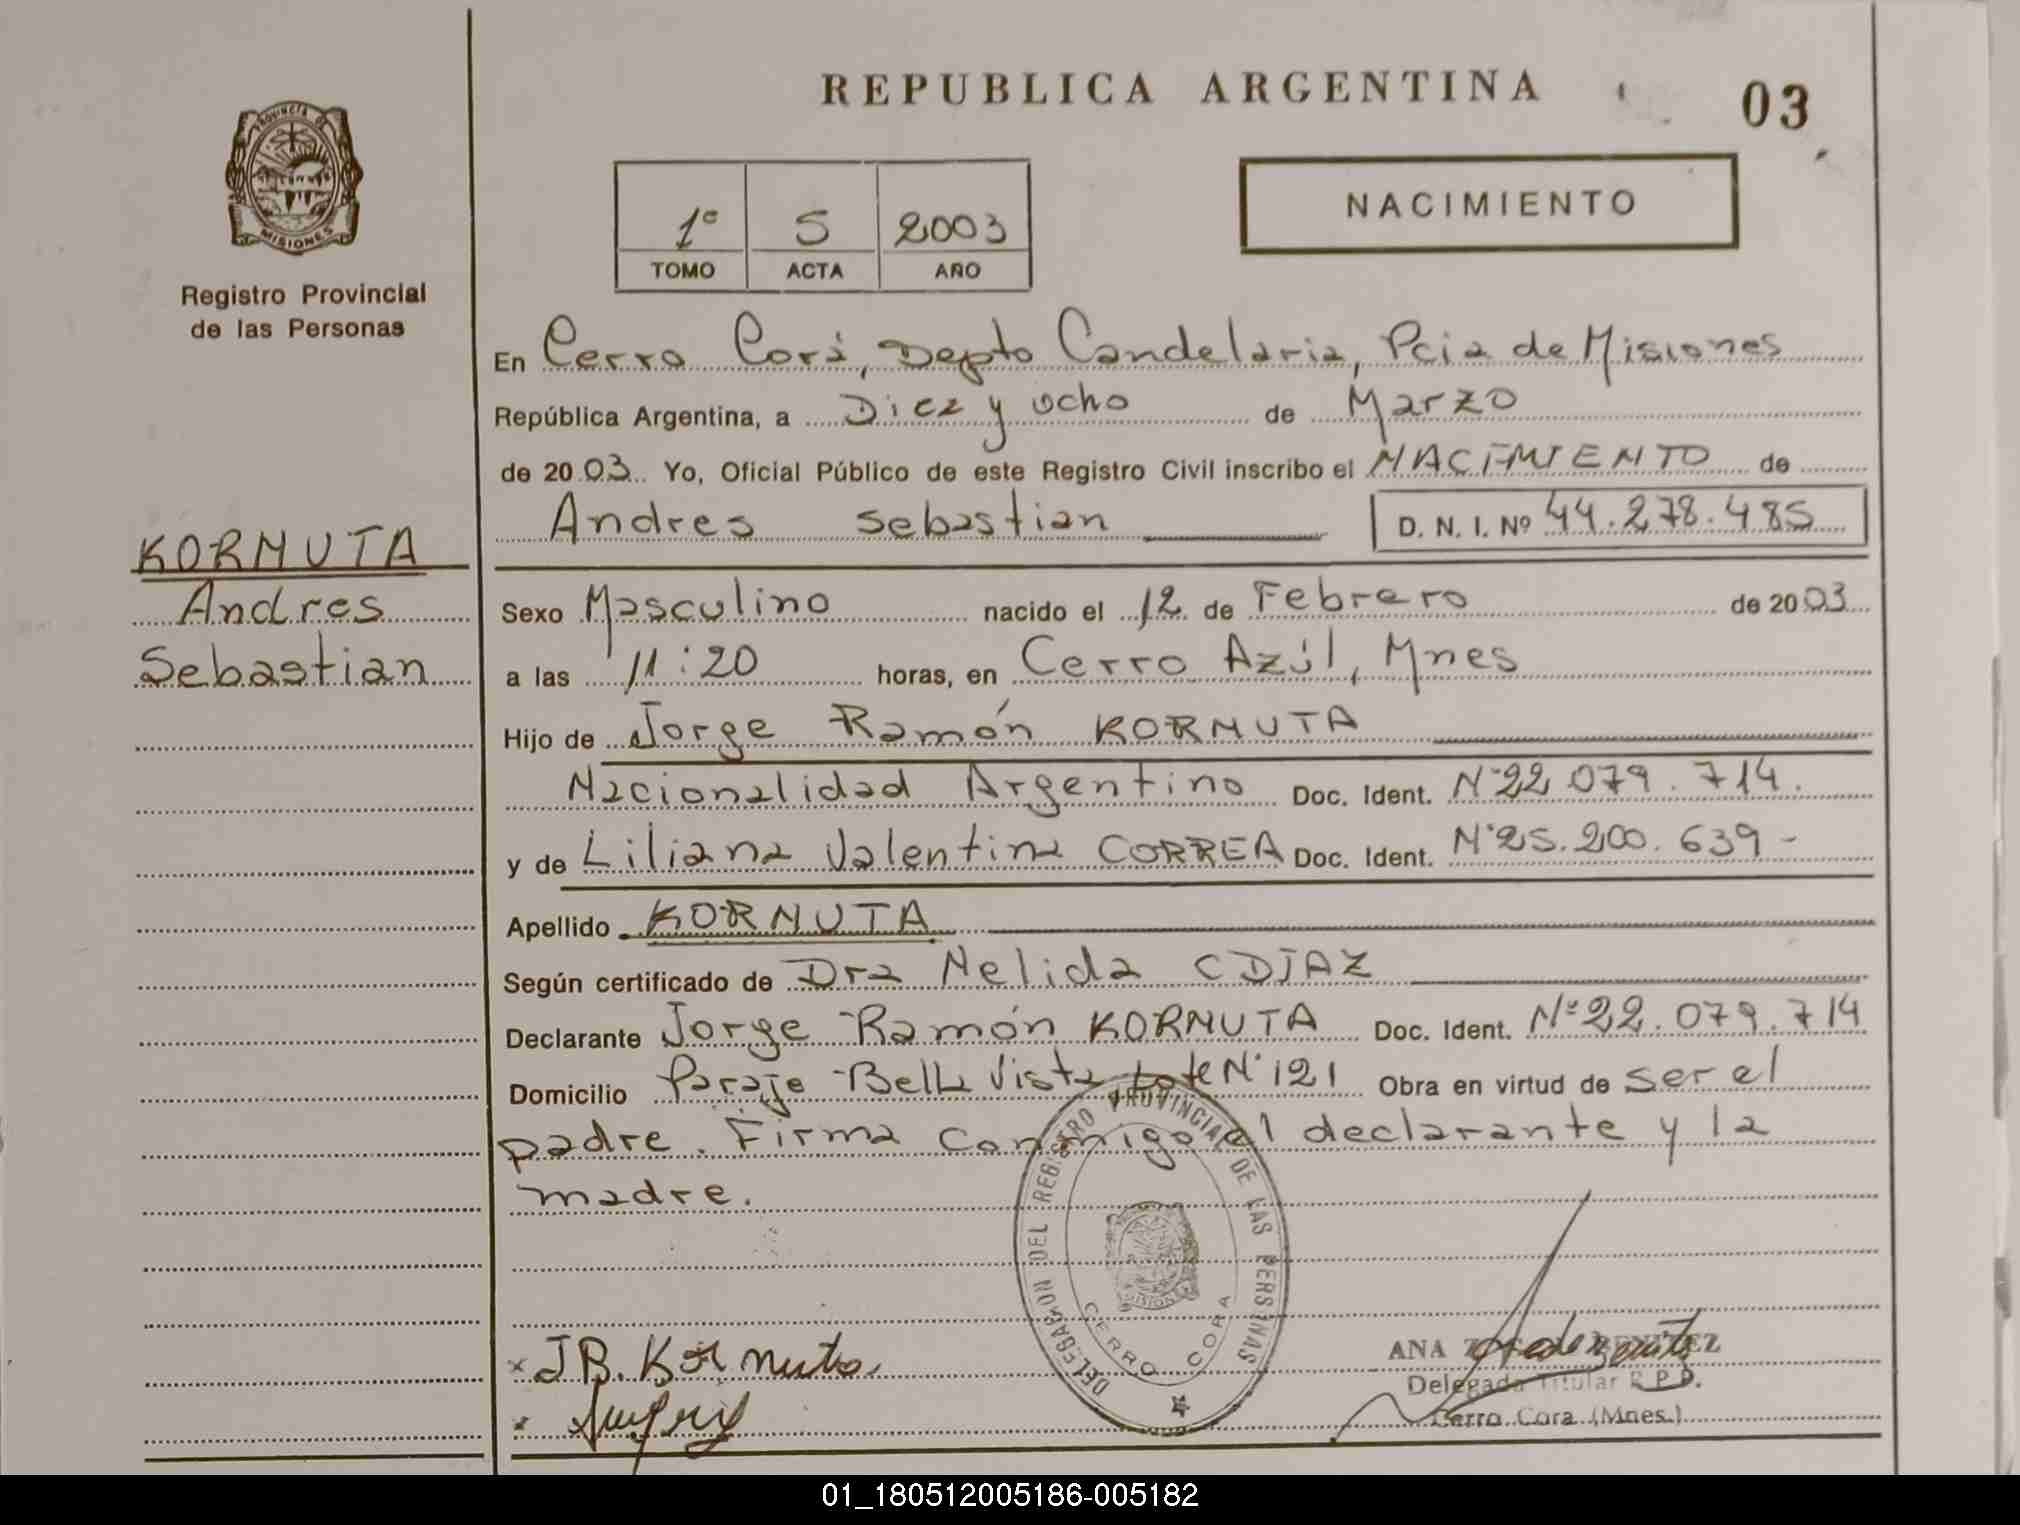 REPUBLICA ARGENTINA
03
PROVINCIA DE
MISIONES
Registro Provincial
de las Personas
1º 5 2003
TOMO ACTA AÑO
NACIMIENTO
En Cerro Corá, Depto Candelaria, Pcia de Misiones
República Argentina, a Diez y ocho de Marzo
de 2003 Yo, Oficial Público de este Registro Civil inscribo el NACIMIENTO de
Andres Sebastian D. N. I. Nº 44.278.485
KORNUTA
Andres
Sebastian
Sexo Masculino nacido el 12 de Febrero de 2003
a las 11:20 horas, en Cerro Azúl, Mnes
Hijo de Jorge Ramón KORNUTA
Nacionalidad Argentino Doc. Ident. Nº22 079.714.
y de Liliana Valentina CORREA Doc. Ident. Nº25.200.639-
Apellido KORNUTA
Según certificado de Dra Nelida C DIAZ
Declarante Jorge Ramón KORNUTA Doc. Ident. Nº22.079.714
Domicilio Paraje Bella Vista Lote Nº121 Obra en virtud de ser el
padre. Firma conmigo el declarante y la
madre.
DELEGACION DEL REGISTRO PROVINCIAL DE LAS PERSONAS
MISIONES
CERRO CORA
x J R. Kornuta
ANA BENITEZ
Delegada Titular R.P.P.
Cerro Cora (Mnes.)
01_180512005186-005182